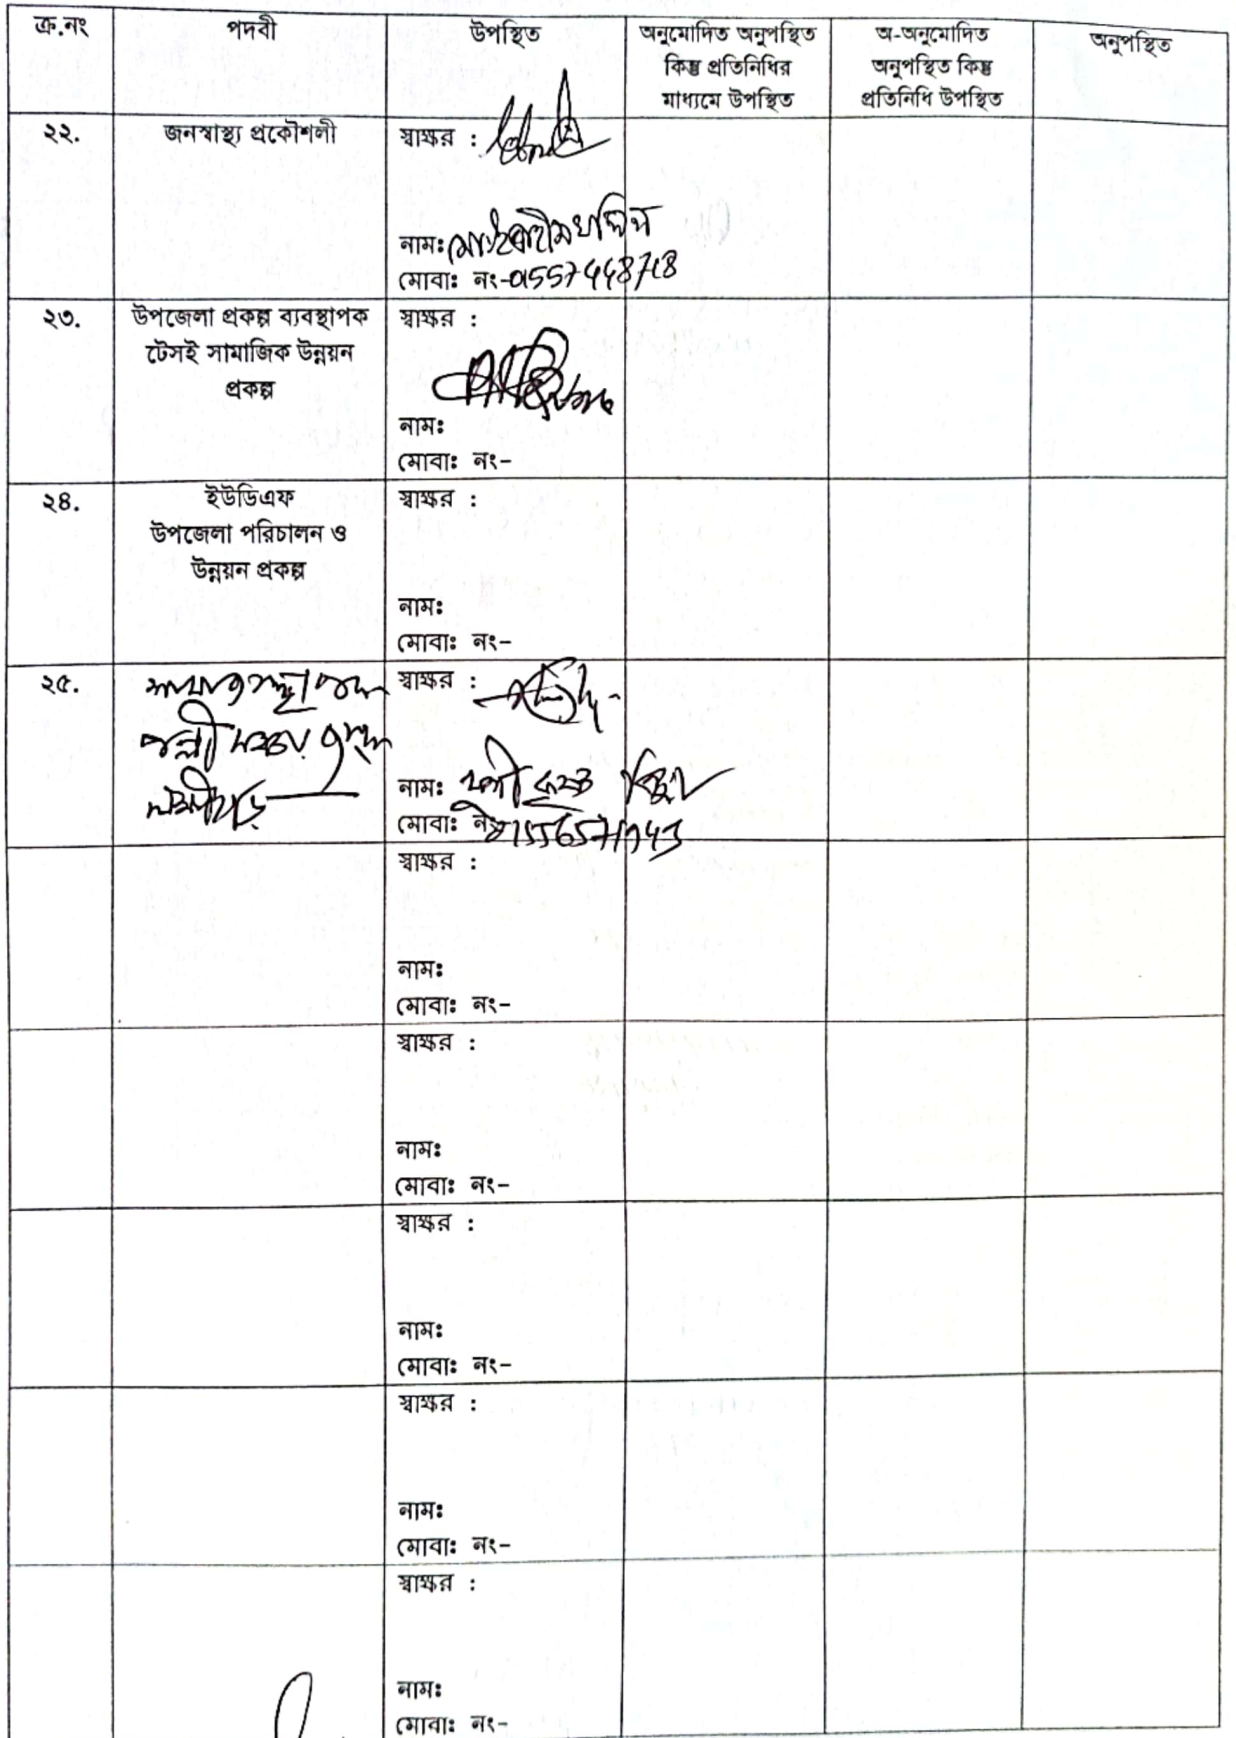 ক্র.নং পদবী উপস্থিত অনুমোদিত অনুপস্থিত কিন্তু প্রতিনিধির মাধ্যমে উপস্থিত অ-অনুমোদিত অনুপস্থিত কিন্তু প্রতিনিধি উপস্থিত অনুপস্থিত
২২. জনস্বাস্থ্য প্রকৌশলী স্বাক্ষর :
নামঃ
মোবাঃ নং-01557448718
২৩. উপজেলা প্রকল্প ব্যবস্থাপক স্বাক্ষর :
টেসই সামাজিক উন্নয়ন
প্রকল্প
নামঃ
মোবাঃ নং-
২৪. ইউডিএফ স্বাক্ষর :
উপজেলা পরিচালন ও
উন্নয়ন প্রকল্প
নামঃ
মোবাঃ নং-
২৫. স্বাক্ষর :
পল্লী সঞ্চয়
নামঃ
মোবাঃ
স্বাক্ষর :
নামঃ
মোবাঃ নং-
স্বাক্ষর :
নামঃ
মোবাঃ নং-
স্বাক্ষর :
নামঃ
মোবাঃ নং-
স্বাক্ষর :
নামঃ
মোবাঃ নং-
স্বাক্ষর :
নামঃ
মোবাঃ নং-